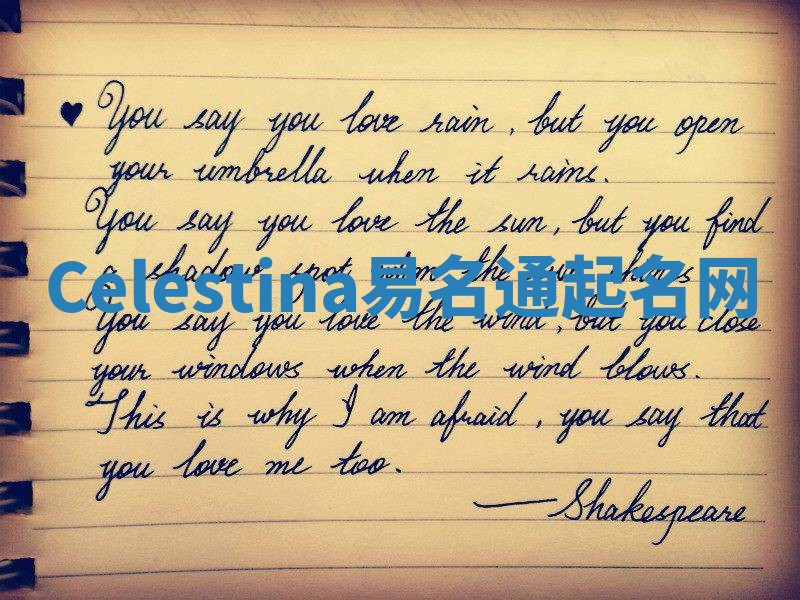 ♥ You say you love rain, but you open
your umbrella when it rains.
You say you love the sun, but you find
a shadow spot when the sun shines
Celestina易名通起名网
You say you love the wind, but you close
your windows when the wind blows.
This is why I am afraid, you say that
you love me too.
— Shakespeare